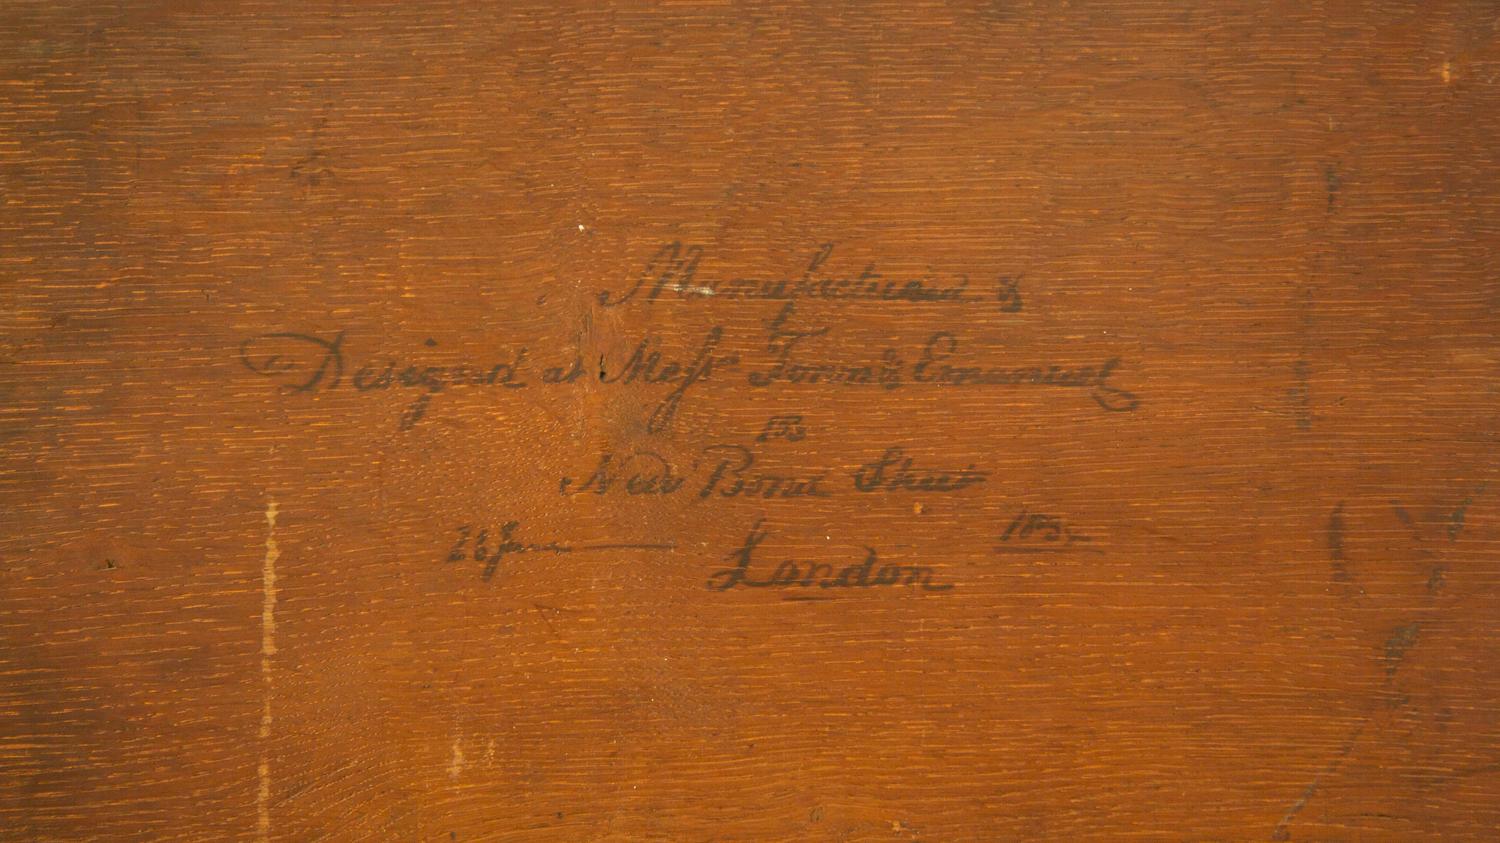 Manufactured &
Designed at Messrs Town & Emanuel
103
New Bond Street
London